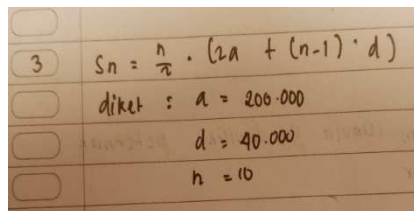 3 Sn = n/2 . (2a + (n-1) . d)
diket : a = 200.000
d = 40.000
n = 10